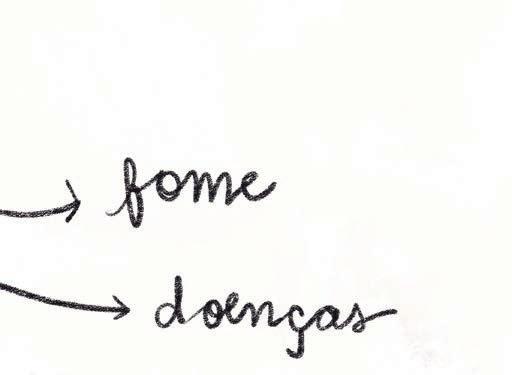 fome
doenças